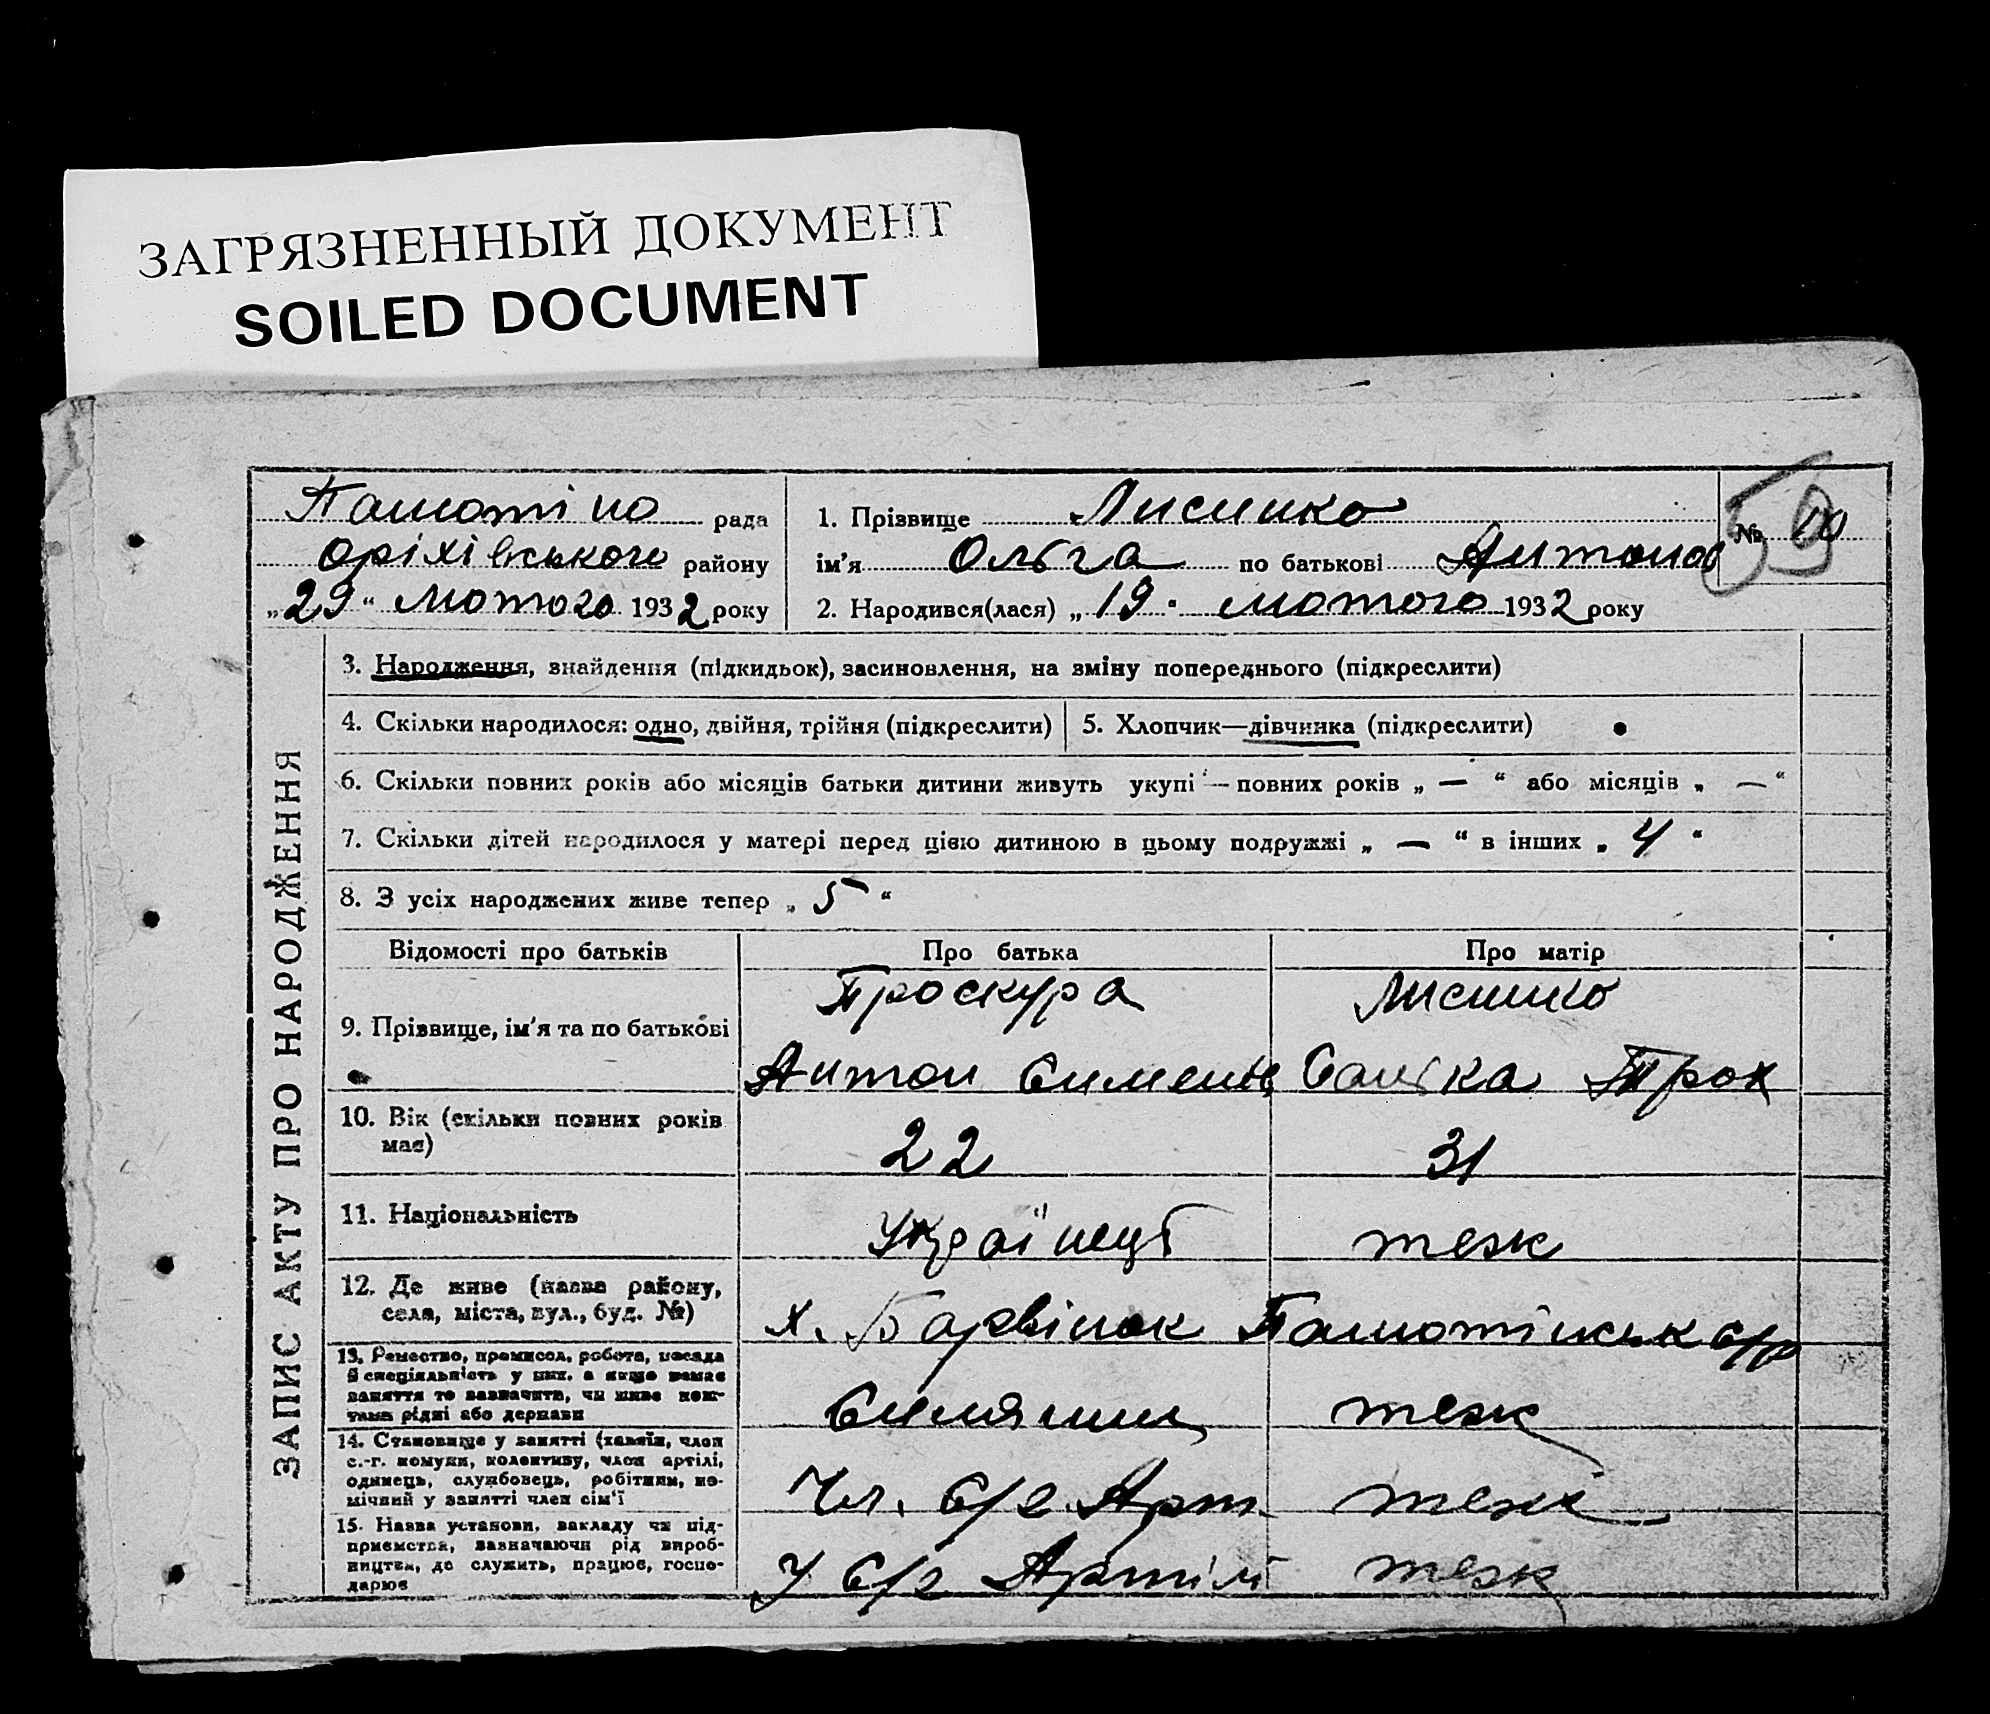 ЗАГРЯЗНЕННЫЙ ДОКУМЕНТ
SOILED DOCUMENT
ЗАПИС АКТУ ПРО НАРОДЖЕННЯ
рада
Оріхівського району
„29“ Лютого 1932 року
1. Прізвище Лисинко
ім'я Ольга по батькові Антонов
№
59
2. Народився(лася) „19“ лютого 1932 року
3. Народження, знайдення (підкидьок), засиновлення, на зміну попереднього (підкреслити)
4. Скільки народилося: одно, двійня, трійня (підкреслити)
5. Хлопчик—дівчинка (підкреслити)
6. Скільки повних років або місяців батьки дитини живуть укупі — повних років „ — “ або місяців „ — “
7. Скільки дітей народилося у матері перед цією дитиною в цьому подружжі „ — “ в інших „ 4 “
8. З усіх народжених живе тепер „ 5 “
Відомості про батьків Про батька Про матір
9. Прізвище, ім'я та по батькові
Проскура Лисинко
Антон Трох
10. Вік (скільки повних років має) 22 31
11. Національність Українці теж
12. Де живе (назва району, села, міста, вул., буд. №)
х. Барвінок с/р
13. Ремество, промисел, робота, посада й спеціяльність у них, а якщо немає заняття то зазначити, чи живе коштами рідні або держави
Силянин теж
14. Становище у занятті (хазяїн, член с.-г. комуни, колективу, член артілі, одинець, службовець, робітник, помічний у занятті член сім'ї
Чл. с/г. Арт. теж
15. Назва установи, закладу чи підприємства, зазначаючи рід виробництва, де служить, працює, господарює
У с/г Артілі теж